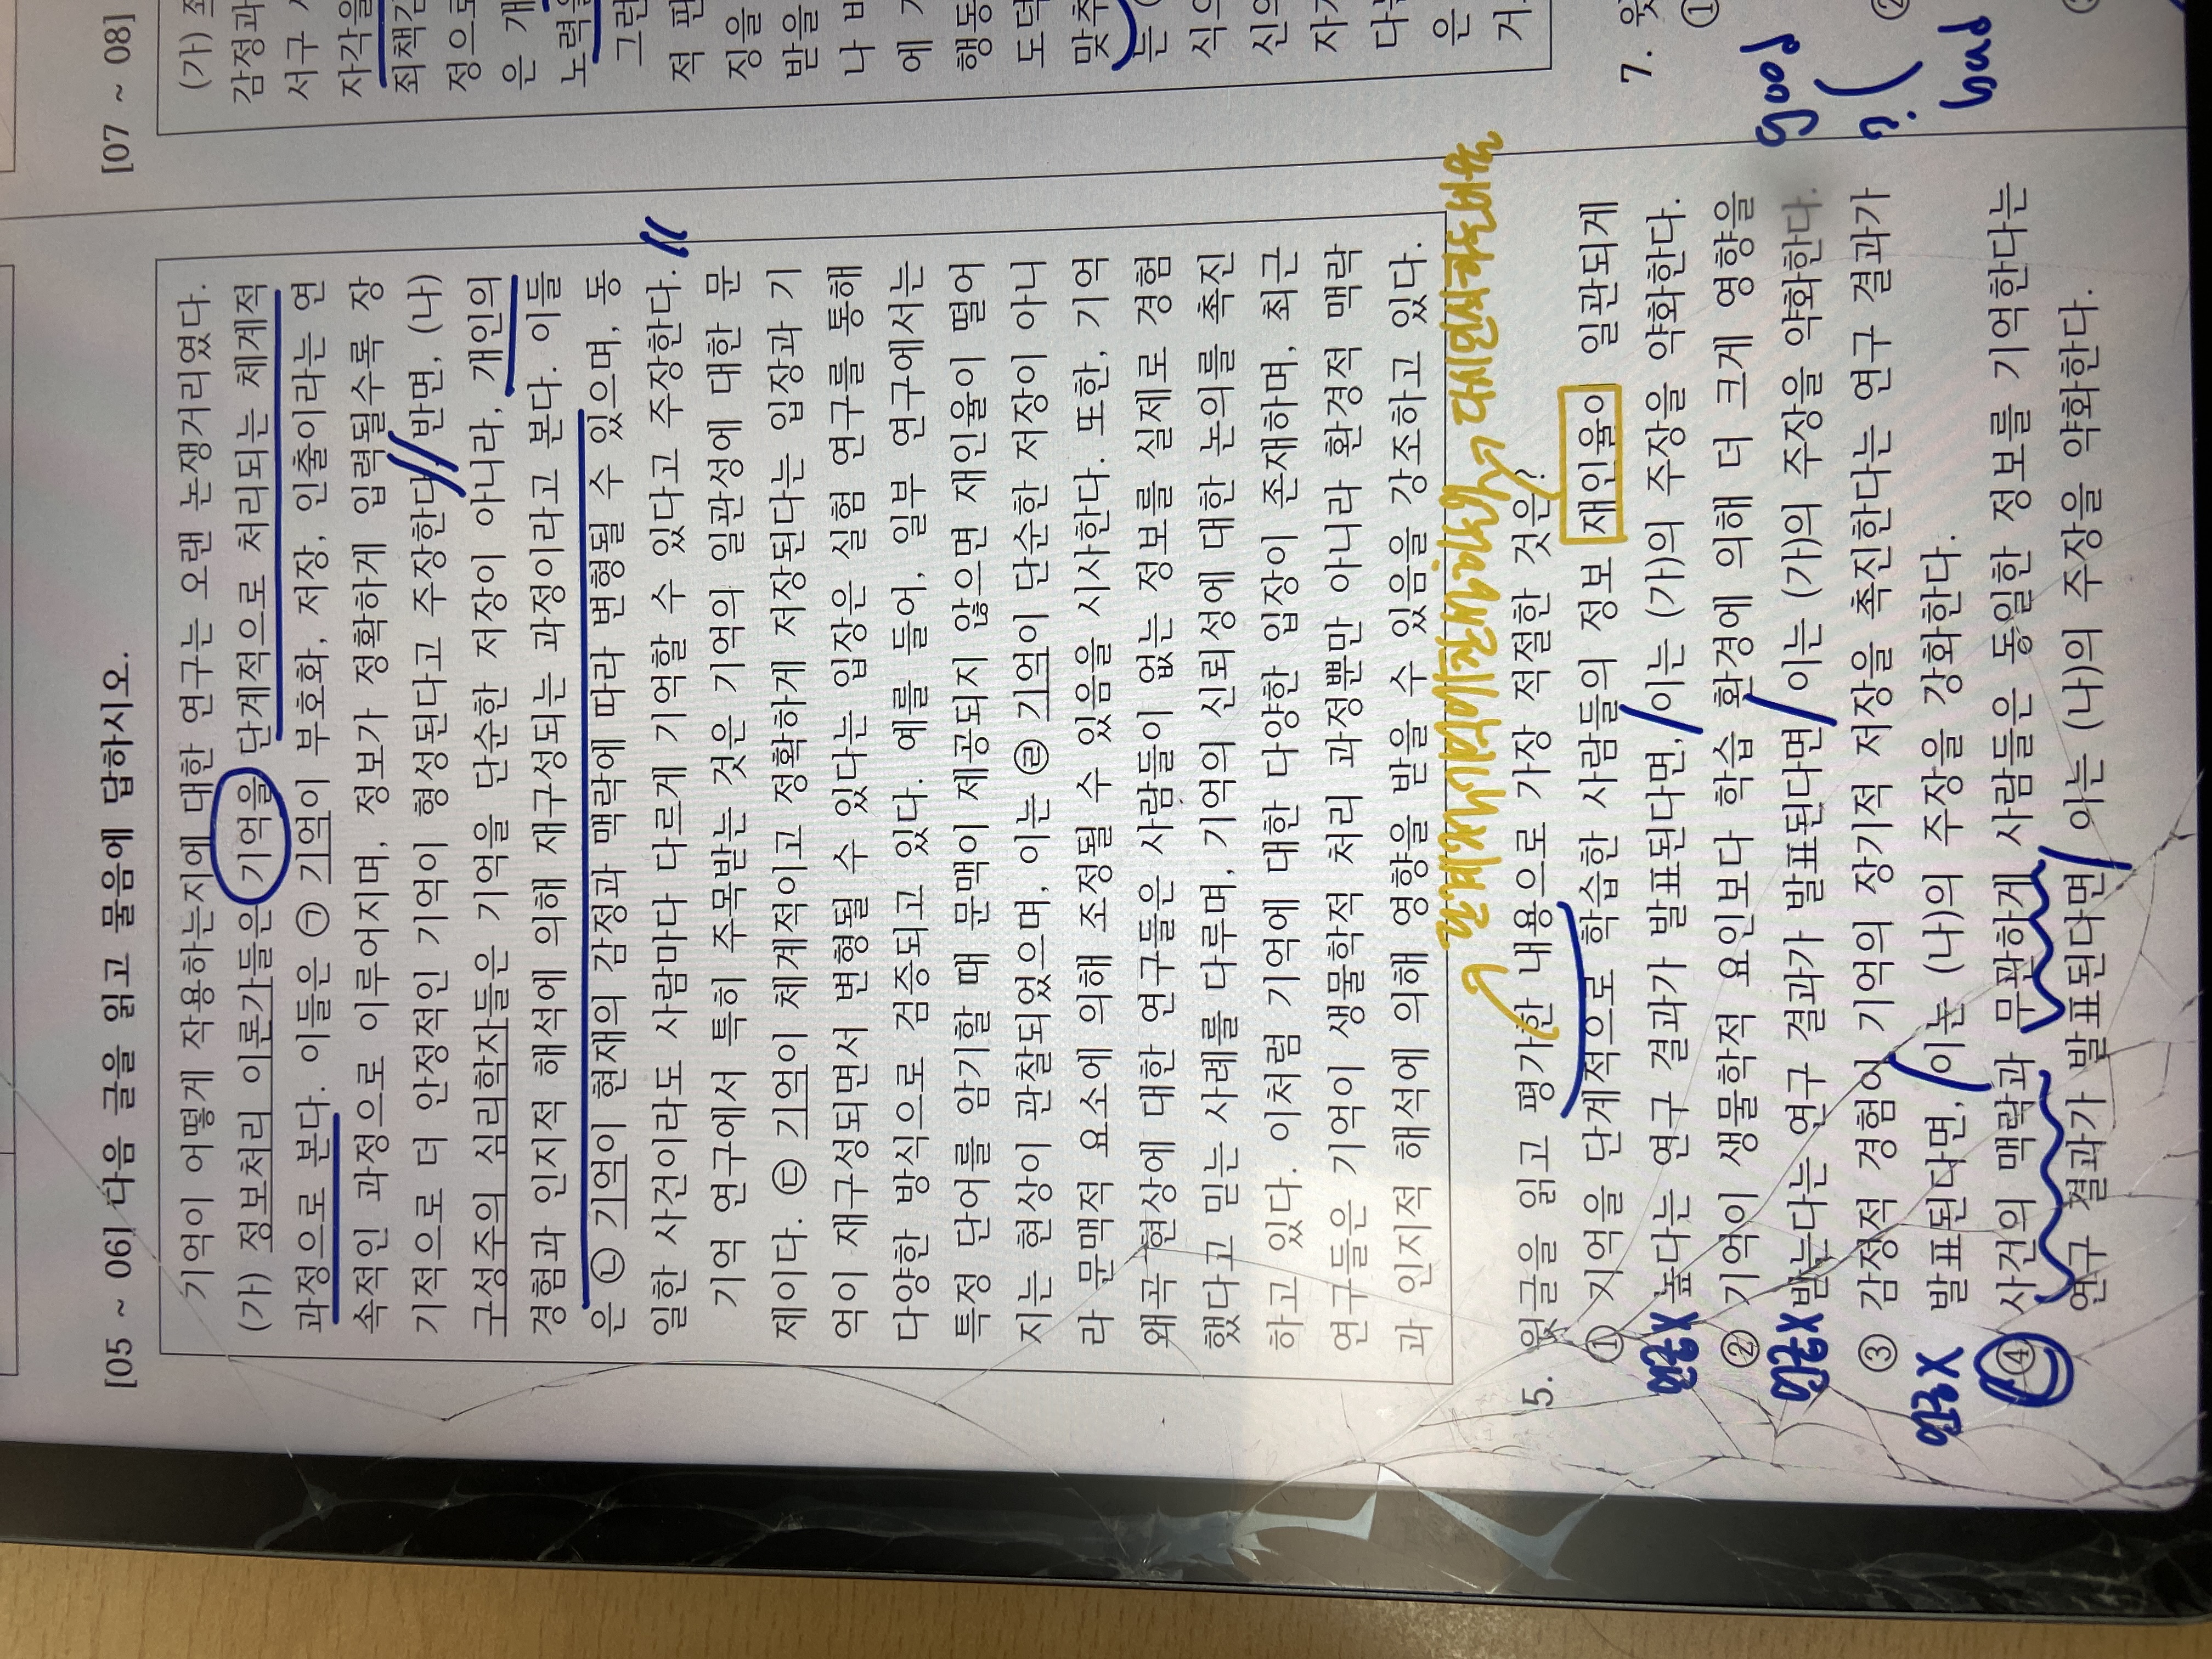 [05 ~ 06] 다음 글을 읽고 물음에 답하시오.
기억이 어떻게 작용하는지에 대한 연구는 오랜 논쟁거리였다.
(가) 정보처리 이론가들은 기억을 단계적으로 처리되는 체계적
과정으로 본다. 이들은 ㉠ 기억이 부호화, 저장, 인출이라는 연
속적인 과정으로 이루어지며, 정보가 정확하게 입력될수록 장
기적으로 더 안정적인 기억이 형성된다고 주장한다. 반면, (나)
구성주의 심리학자들은 기억을 단순한 저장이 아니라, 개인의
경험과 인지적 해석에 의해 재구성되는 과정이라고 본다. 이들
은 ㉡ 기억이 현재의 감정과 맥락에 따라 변형될 수 있으며, 동
일한 사건이라도 사람마다 다르게 기억할 수 있다고 주장한다.
기억 연구에서 특히 주목받는 것은 기억의 일관성에 대한 문
제이다. ㉢ 기억이 체계적이고 정확하게 저장된다는 입장과 기
억이 재구성되면서 변형될 수 있다는 입장은 실험 연구를 통해
다양한 방식으로 검증되고 있다. 예를 들어, 일부 연구에서는
특정 단어를 암기할 때 문맥이 제공되지 않으면 재인율이 떨어
지는 현상이 관찰되었으며, 이는 ㉣ 기억이 단순한 저장이 아니
라 문맥적 요소에 의해 조정될 수 있음을 시사한다. 또한, 기억
왜곡 현상에 대한 연구들은 사람들이 없는 정보를 실제로 경험
했다고 믿는 사례를 다루며, 기억의 신뢰성에 대한 논의를 촉진
하고 있다. 이처럼 기억에 대한 다양한 입장이 존재하며, 최근
연구들은 기억이 생물학적 처리 과정뿐만 아니라 환경적 맥락
과 인지적 해석에 의해 영향을 받을 수 있음을 강조하고 있다.
5. 윗글을 읽고 평가한 내용으로 가장 적절한 것은?
① 기억을 단계적으로 학습한 사람들의 정보 재인율이 일관되게
높다는 연구 결과가 발표된다면, 이는 (가)의 주장을 약화한다.
연관X
② 기억이 생물학적 요인보다 학습 환경에 의해 더 크게 영향을
받는다는 연구 결과가 발표된다면 이는 (가)의 주장을 약화한다.
연관X
③ 감정적 경험이 기억의 장기적 저장을 촉진한다는 연구 결과가
발표된다면, 이는 (나)의 주장을 강화한다.
연관X
④ 사건의 맥락과 무관하게 사람들은 동일한 정보를 기억한다는
연구 결과가 발표된다면 이는 (나)의 주장을 약화한다.
[07 ~ 08]
(가)
감정과
서구
자각을
죄책감
정으로
은 개
노력을
그런
적 판
징을
받을
나
에
행동
도덕
맞추
는
식으
신의
자기
다는
은
거
7. 윗
①
good
②
?
bad